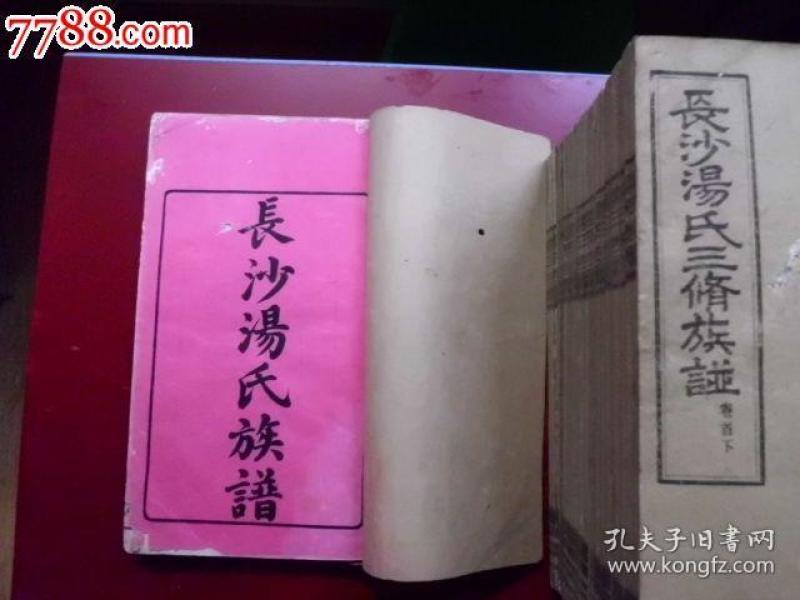 7788.com
長沙湯氏族譜
長沙湯氏三脩族譜
卷首下
孔夫子旧书网
www.kongfz.com